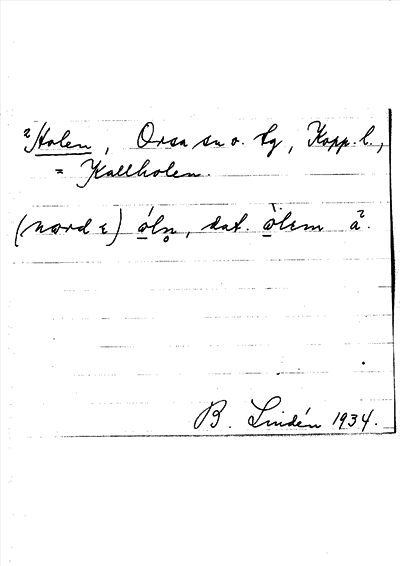 ²Holen, Orsa sn o. tg, Kopp. l.,
= Kallholen.
(nœrd ɛ) ǿln̥, dat. ø̀lɛm å².
B. Lindén 1934.